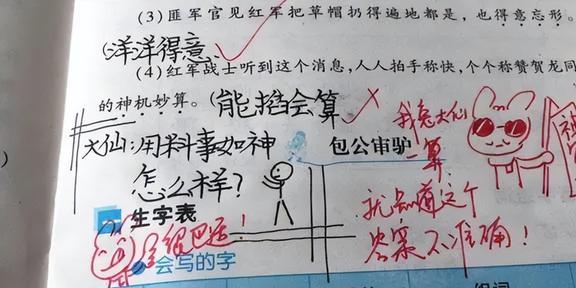 (3) 匪军官见红军把草帽扔得遍地都是，也得意忘形。
(洋洋得意
(4) 红军战士听到这个消息，人人拍手称快，个个称赞贺龙同
的神机妙算。(能掐会算
大仙：用料事如神
怎么样？
包公审驴
我兔大仙
一算
就知道这个
答案不准确！
神
生字表
会写的字